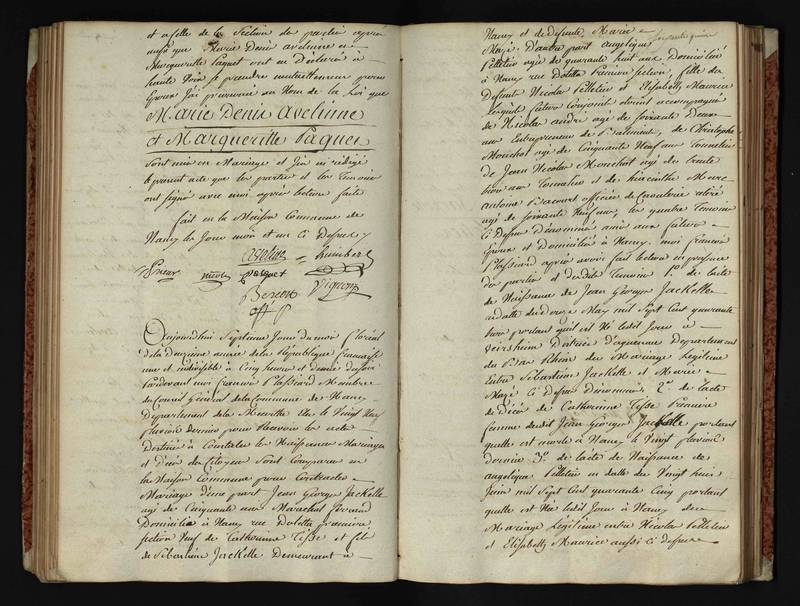 et a celle de la section de partie après
aussi que Marie Denis avelinne et
Marguerite Paquet ont eu Déclaré à
haute voix se prendre mutuellement pour
Epoux J'ai prononcé au Nom de la Loi que
Marie Denis Avelinne
et Margueritte Paquet
sont unis en Mariage et J'ai rédigé
le présent acte que les parties et les Temoins
ont signé avec moi après lecture faite
fait en la Maison Commune de
Nancy les Jour mois et an Ci Dessus
avelinne humbert
nicolas paquet
Aujourd'hui Septieme Jour du mois floréal
de la deuxieme annee de la République francaise
une et indivisible à Cinq heures et demie du soir
pardevant moi francois Plassiard Membre
du Conseil Général de la Commune de Nancy
Departement de la Meurthe Elu le Vingt Neuf
pluviose Dernier pour Recevoir les actes
Destinés à Constater les Naissances Mariages
et Décès des Citoyens sont Comparus en
la Maison Commune pour Contracter
Mariage D'une part Jean George Jackelle
agé de Cinquante ans Marechal ferrand
Domicilié à Nancy rue premiere
section Veuf de Catherinne Tisse et fils
de Sébastienne Jackelle Demeurant à
Nancy et de défunte Marie
Mazé. D'autre part angélique
Pelletin agée de quarante huit ans Domiciliée
à Nancy rue premiere section, fille de
Defunt Nicolas Pelletin et Elisabeth Maurice
lesquels futurs Conjoints étoient accompagnés
de Nicolas andré agé de soixante Deux
ans Entrepreneur de Batiment, de Christophe
Mouchot agé de Cinquante Neuf ans Tonnelier
de Jean Nicolas Mouchot agé de trente
trois ans Tonnelier et de hiacinthe Marc
antoine Bacourt officier de Cavalerie retiré
agé de soixante Neuf ans, les quatre Temoins
Ci Dessus Dénommés amis aux futurs
Epoux et Domiciliés à Nancy. moi francois
Plassiard après avoir fait lecture en presence
des parties et desdits Temoins 1.° de l'acte
de Naissance de Jean George Jackelle
en datte du douze May mil sept Cent quarante
trois portant qu'il est Né ledit Jour à
Département
du Bas Rhin du Mariage Légitime
Entre Sébastienne Jackelle et Marie
Mazé Ci Dessus Dénommés, 2.° de l'acte
de Décès de Catherinne Tisse Premiere
femme dudit Jean George Jackelle portant
qu'elle est morte à Nancy le Vingt pluviose
dernier 3.° de l'acte de Naissance de
angelique Pelletin en datte du Vingt huit
Juin mil sept Cent quarante Cinq portant
qu'elle est Née ledit Jour à Nancy du
Mariage Légitime entre Nicolas Pelletin
et Elisabeth Maurice aussi Ci dessus